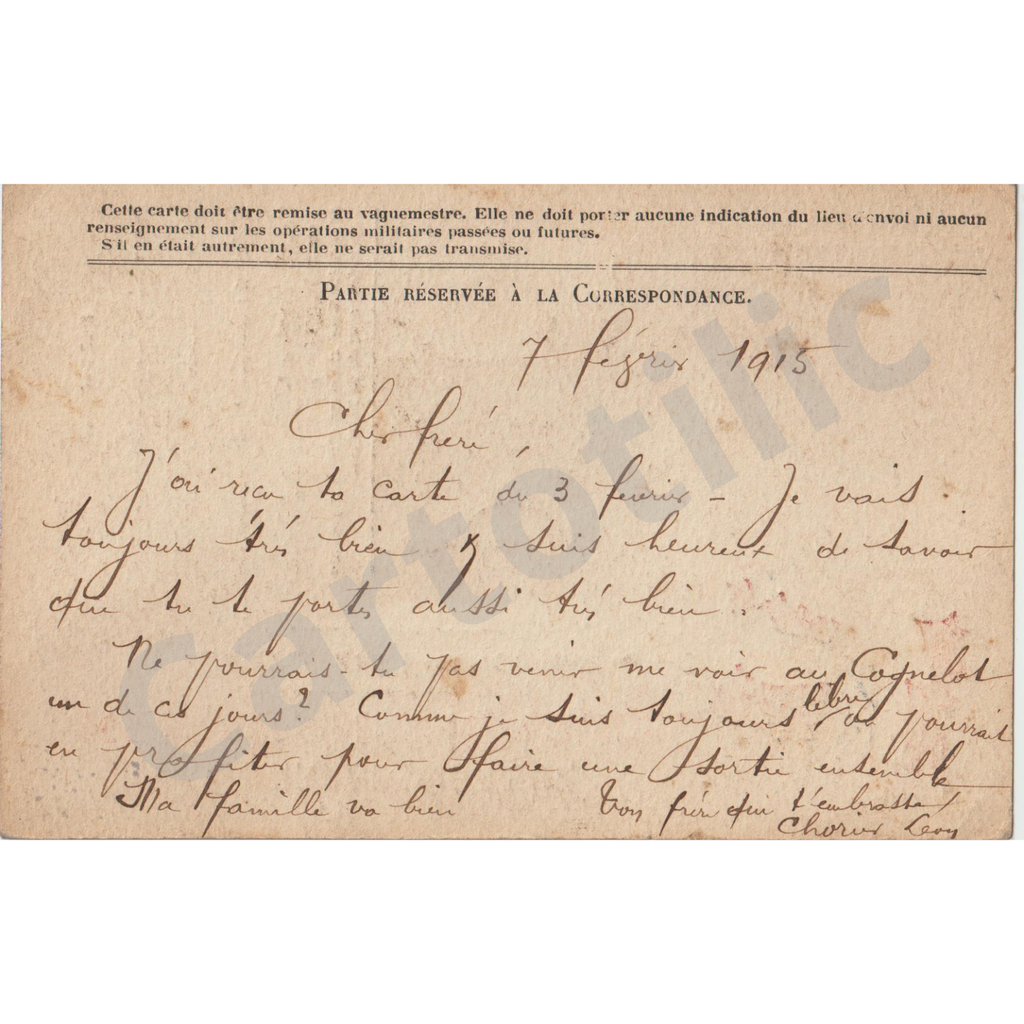 Cette carte doit être remise au vaguemestre. Elle ne doit porter aucune indication du lieu d'envoi ni aucun
renseignement sur les opérations militaires passées ou futures.
S'il en était autrement, elle ne serait pas transmise.
PARTIE RÉSERVÉE À LA CORRESPONDANCE.
7 février 1915
Cher frère,
J'ai reçu ta carte du 3 fevrier - Je vais
toujours très bien & suis heureux de savoir
que tu te portes aussi très bien.
Ne pourrais-tu pas venir me voir au Cognelot
un de ces jours? Comme je suis toujours libre, on pourrait
en profiter pour faire une sortie ensemble
Ma famille va bien Ton frère qui t'embrasse,
Chorier Leon
Cartotilic